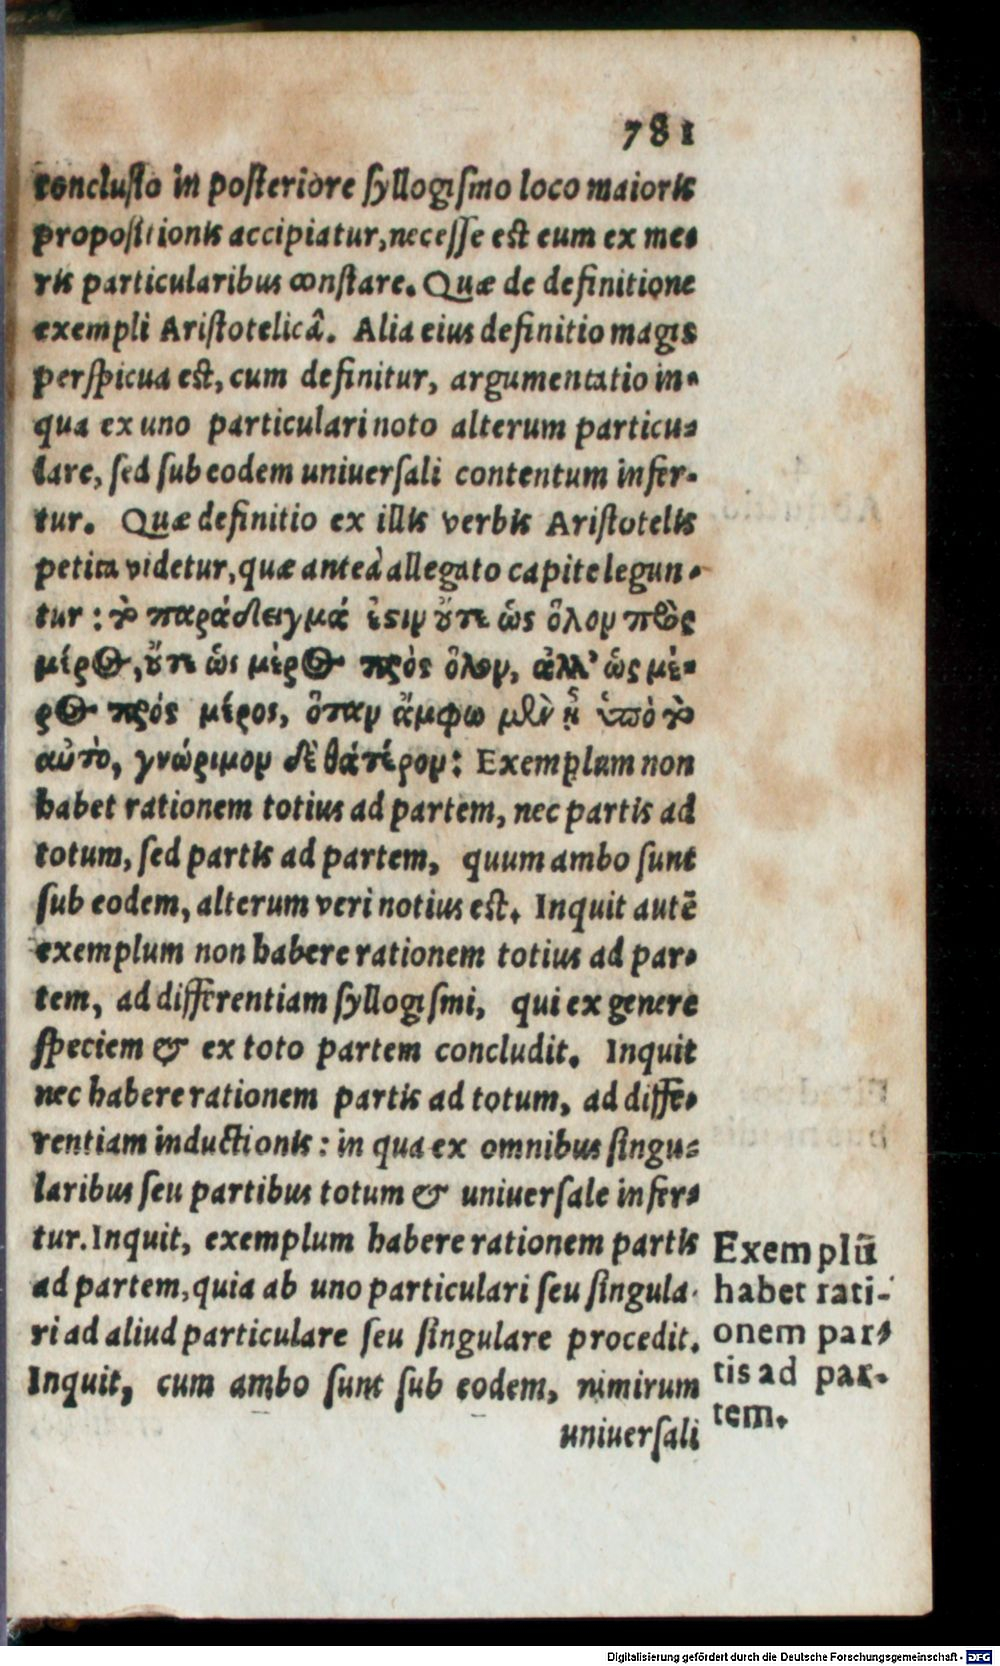 781
conclusio in posteriore syllogismo loco maioris
propositionis accipiatur, necesse est eum ex me-
ris particularibus constare. Quæ de definitione
exempli Aristotelicâ. Alia eius definitio magis
perspicua est, cum definitur, argumentatio in-
qua ex uno particulari noto alterum particu-
lare, sed sub eodem uniuersali contentum infer-
tur. Quæ definitio ex illis verbis Aristotelis
petita videtur, quæ anteà allegato capite legun-
tur: τὸ παράδειγμά ἐστιν οὔτε ὡς ὅλον πρὸς
μέρος, οὔτε ὡς μέρος πρὸς ὅλον, ἀλλ' ὡς μέ-
ρος πρός μέρος, ὅταν ἄμφω μὲν ᾖ ὑπὸ τὸ
αὐτὸ, γνώριμον δὲ θάτέρον: Exemplum non
habet rationem totius ad partem, nec partis ad
totum, sed partis ad partem, quum ambo sunt
sub eodem, alterum verò notius est. Inquit autē
exemplum non habere rationem totius ad par-
tem, ad differentiam syllogismi, qui ex genere
speciem & ex toto partem concludit. Inquit
nec habere rationem partis ad totum, ad diffe-
rentiam inductionis: in qua ex omnibus singu-
laribus seu partibus totum & uniuersale infer-
tur. Inquit, exemplum habere rationem partis
ad partem, quia ab uno particulari seu singula-
ri ad aliud particulare seu singulare procedit.
Inquit, cum ambo sunt sub eodem, nimirum
uniuersali
Exemplū
habet rati-
onem par-
tis ad par-
tem.
Digitalisierung gefördert durch die Deutsche Forschungsgemeinschaft - DFG